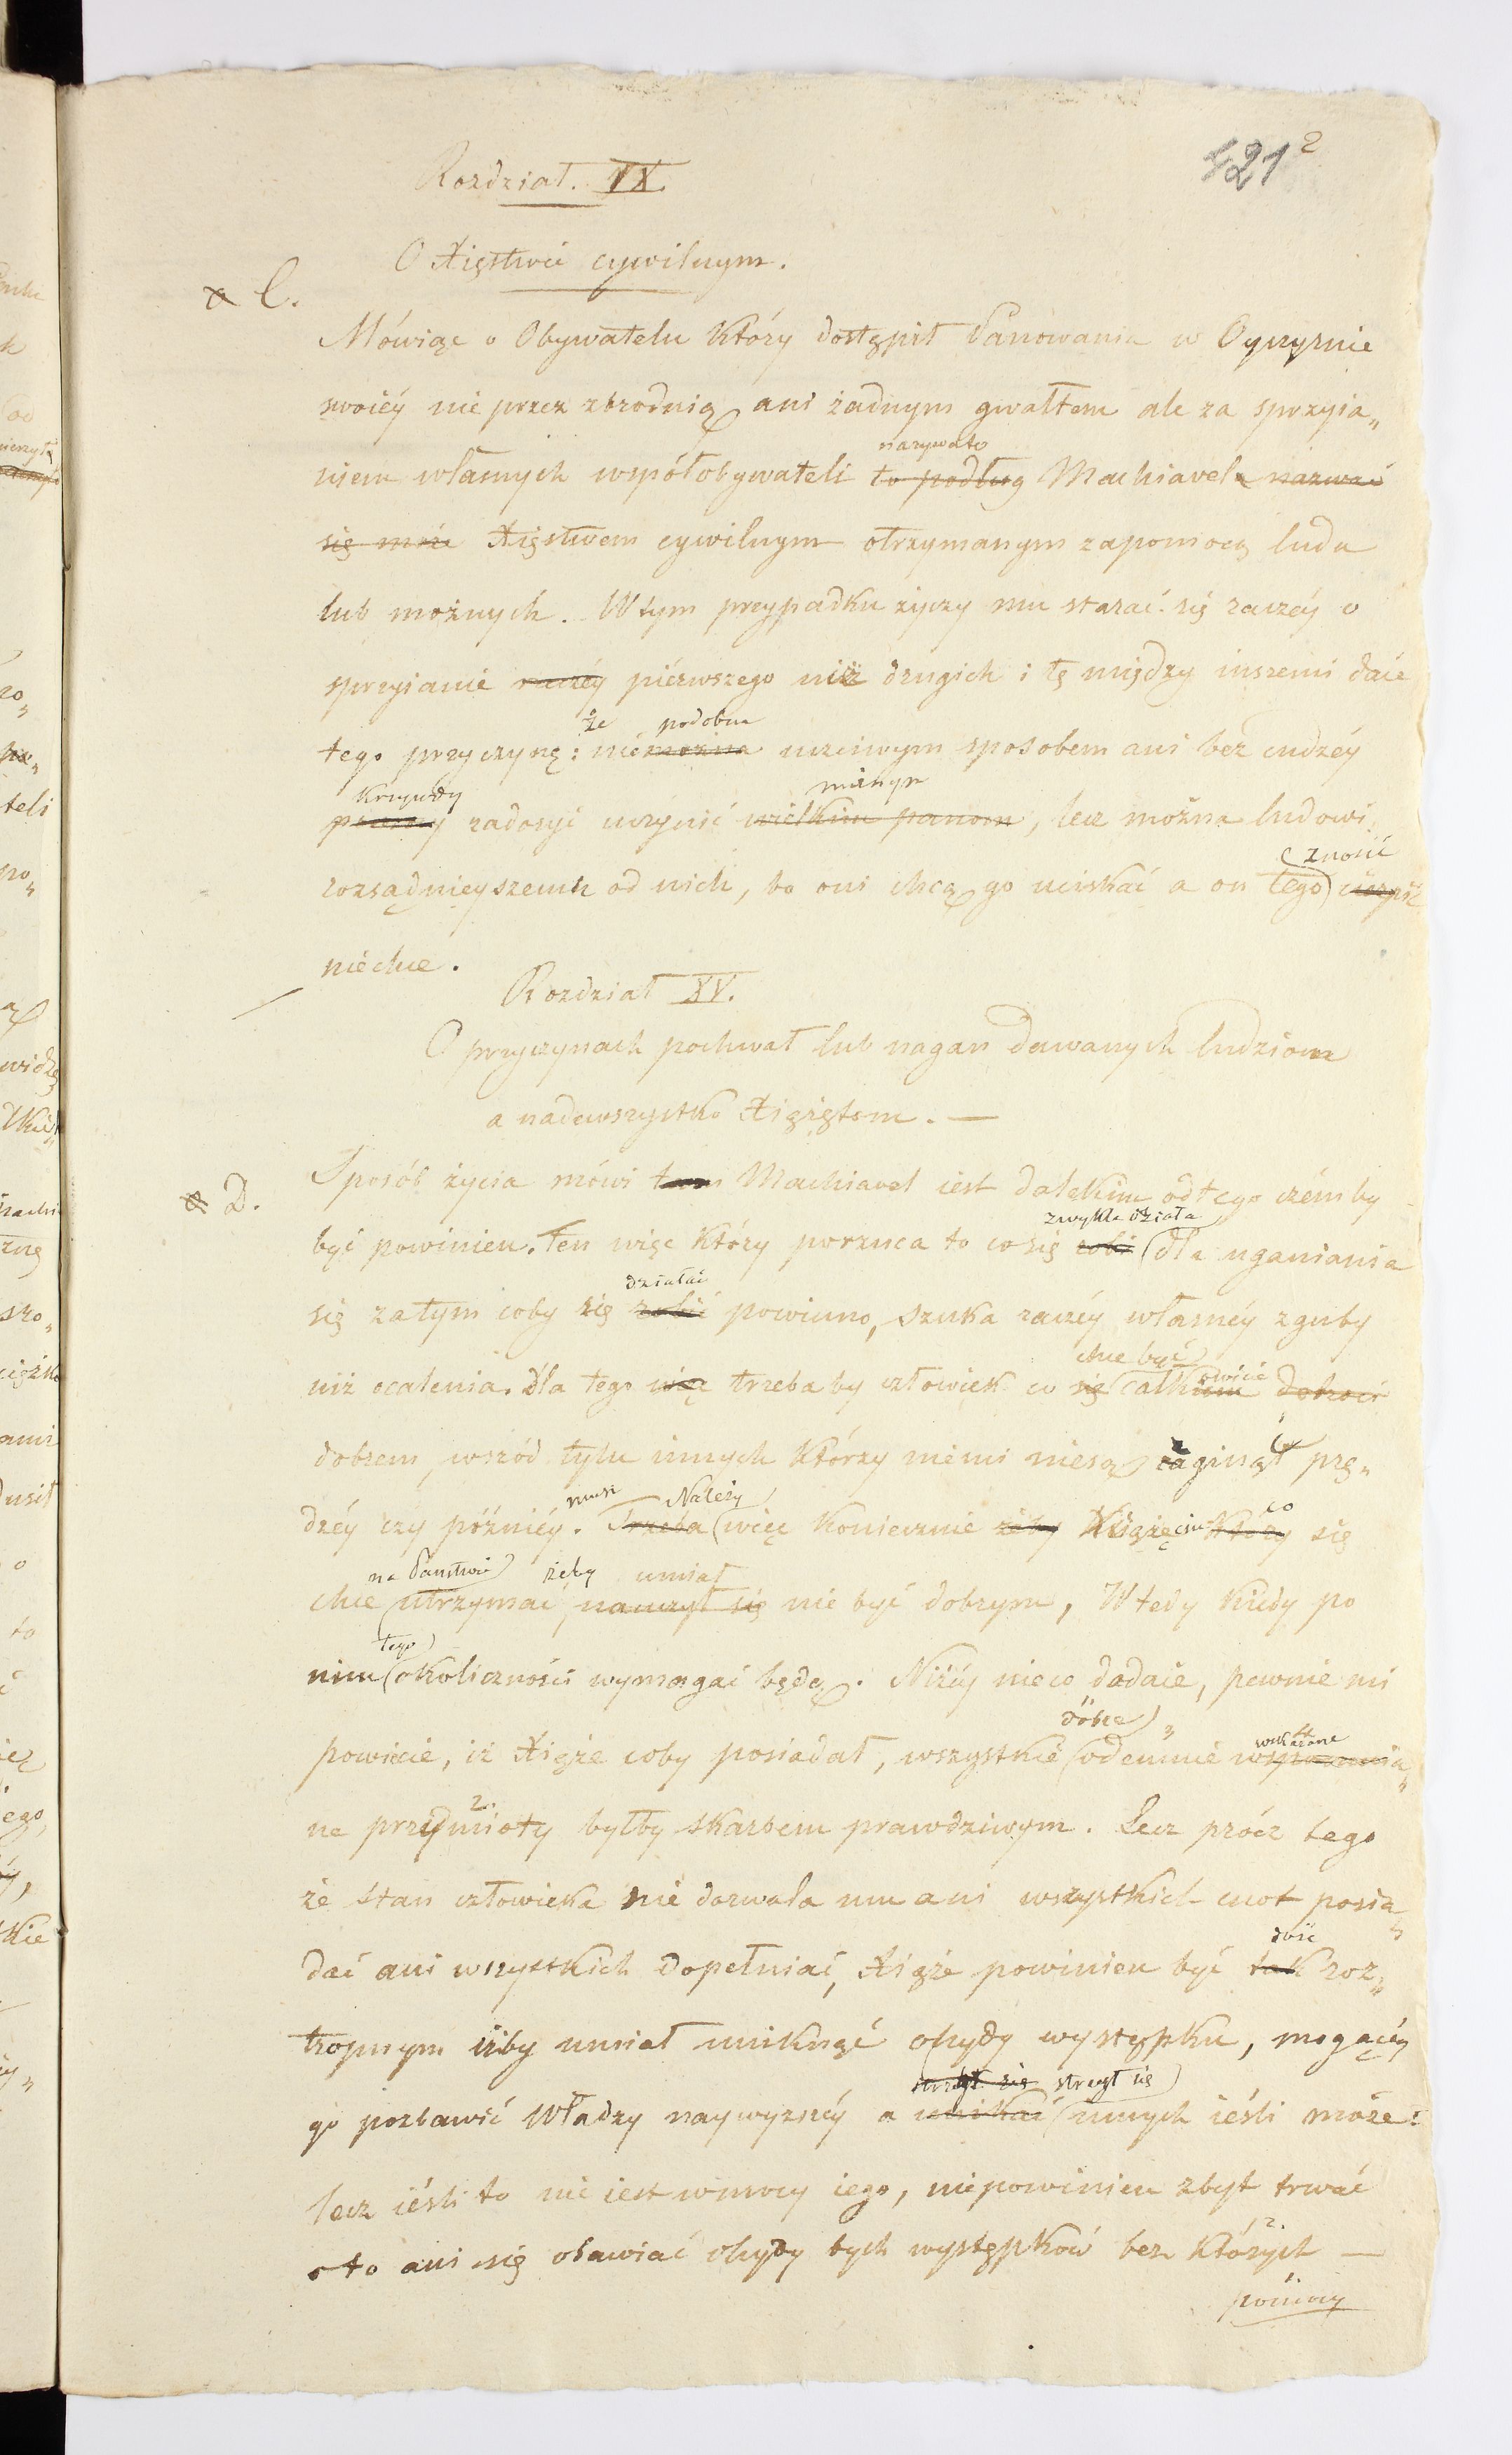 421 2
Rozdział. IX.
O Xięstwie cywilnym.
a C.
Mówiąc o Obywatelu który dostąpił Panowania w Oyczyznie
swoiéy nie przez zbrodnią ani żadnym gwałtem ale za sprzyia„
nazywa to
niem własnych współobywateli to podług Machiavela nazwać
się może Xięstwem cywilnym otrzymanym zapomocą ludu
lub możnych. W tym przypadku życzy mu starać się raczéy o
sprzyianie raczéy piérwszego niż drugich i tę między inszemi daie
że podobna
tego przyczynę: nie można uczciwym sposobem ani bez cudzéy
krzywdy możnym
zadosyć uczynić wielkim panom, lecz można ludowi
znosić
rozsądnieyszemu od nich, bo oni chcą go uciskać a on tego cierpić
niechce.
Rozdział XV.
O przyczynach pochwał lub nagan dawanych ludziom
a nadewszystko Xiążętom. —
a D.
Sposób życia mówi tam Machiavel iest dalekim od tego czém by
zwykle działa
być powinien. Ten więc który porzuca to co się robi dla uganiania
działać
się zatym coby się robić powinno, szuka raczéy własnéy zguby
chce być
niż ocalenia. dla tego więc trzeba by człowiek co się całkowicie dobroci
dobrem, wśród tylu innych którzy niemi niesą zaginął prę„
musi Należy co
dzéy czy późniéy. Trzeba więc koniecznie żeby Książęciu który się
na Państwie żeby umiał
chce utrzymać, nauczył się nie być dobrym, Wtedy kiedy po
tego
nim okoliczności wymagać będą. Niżéy nieco dodaie, pewnie mi
dobre
powiecie, iż Xiąże coby posiadał, wszystkie odemnie wskazane
2.
ne przymioty byłby skarbem prawdziwym. Lecz prócz tego
że stan człowieka nie dozwala mu ani wszystkich cnot posia„
dość
dać ani wszystkich dopełniać, Xiąże powinien być tak roz„
tropnym iżby umiał uniknąć ohydy występku, mogącéy
strzegł się strzegł się
go pozbawić Władzy naywyższéy a unikać innych ieśli może:
lecz ieśli to nie iest wmocy iego, niepowinien zbyt trwać
2.
oto ani się obawiać ohydy tych występków bez których —
1.
pomocy